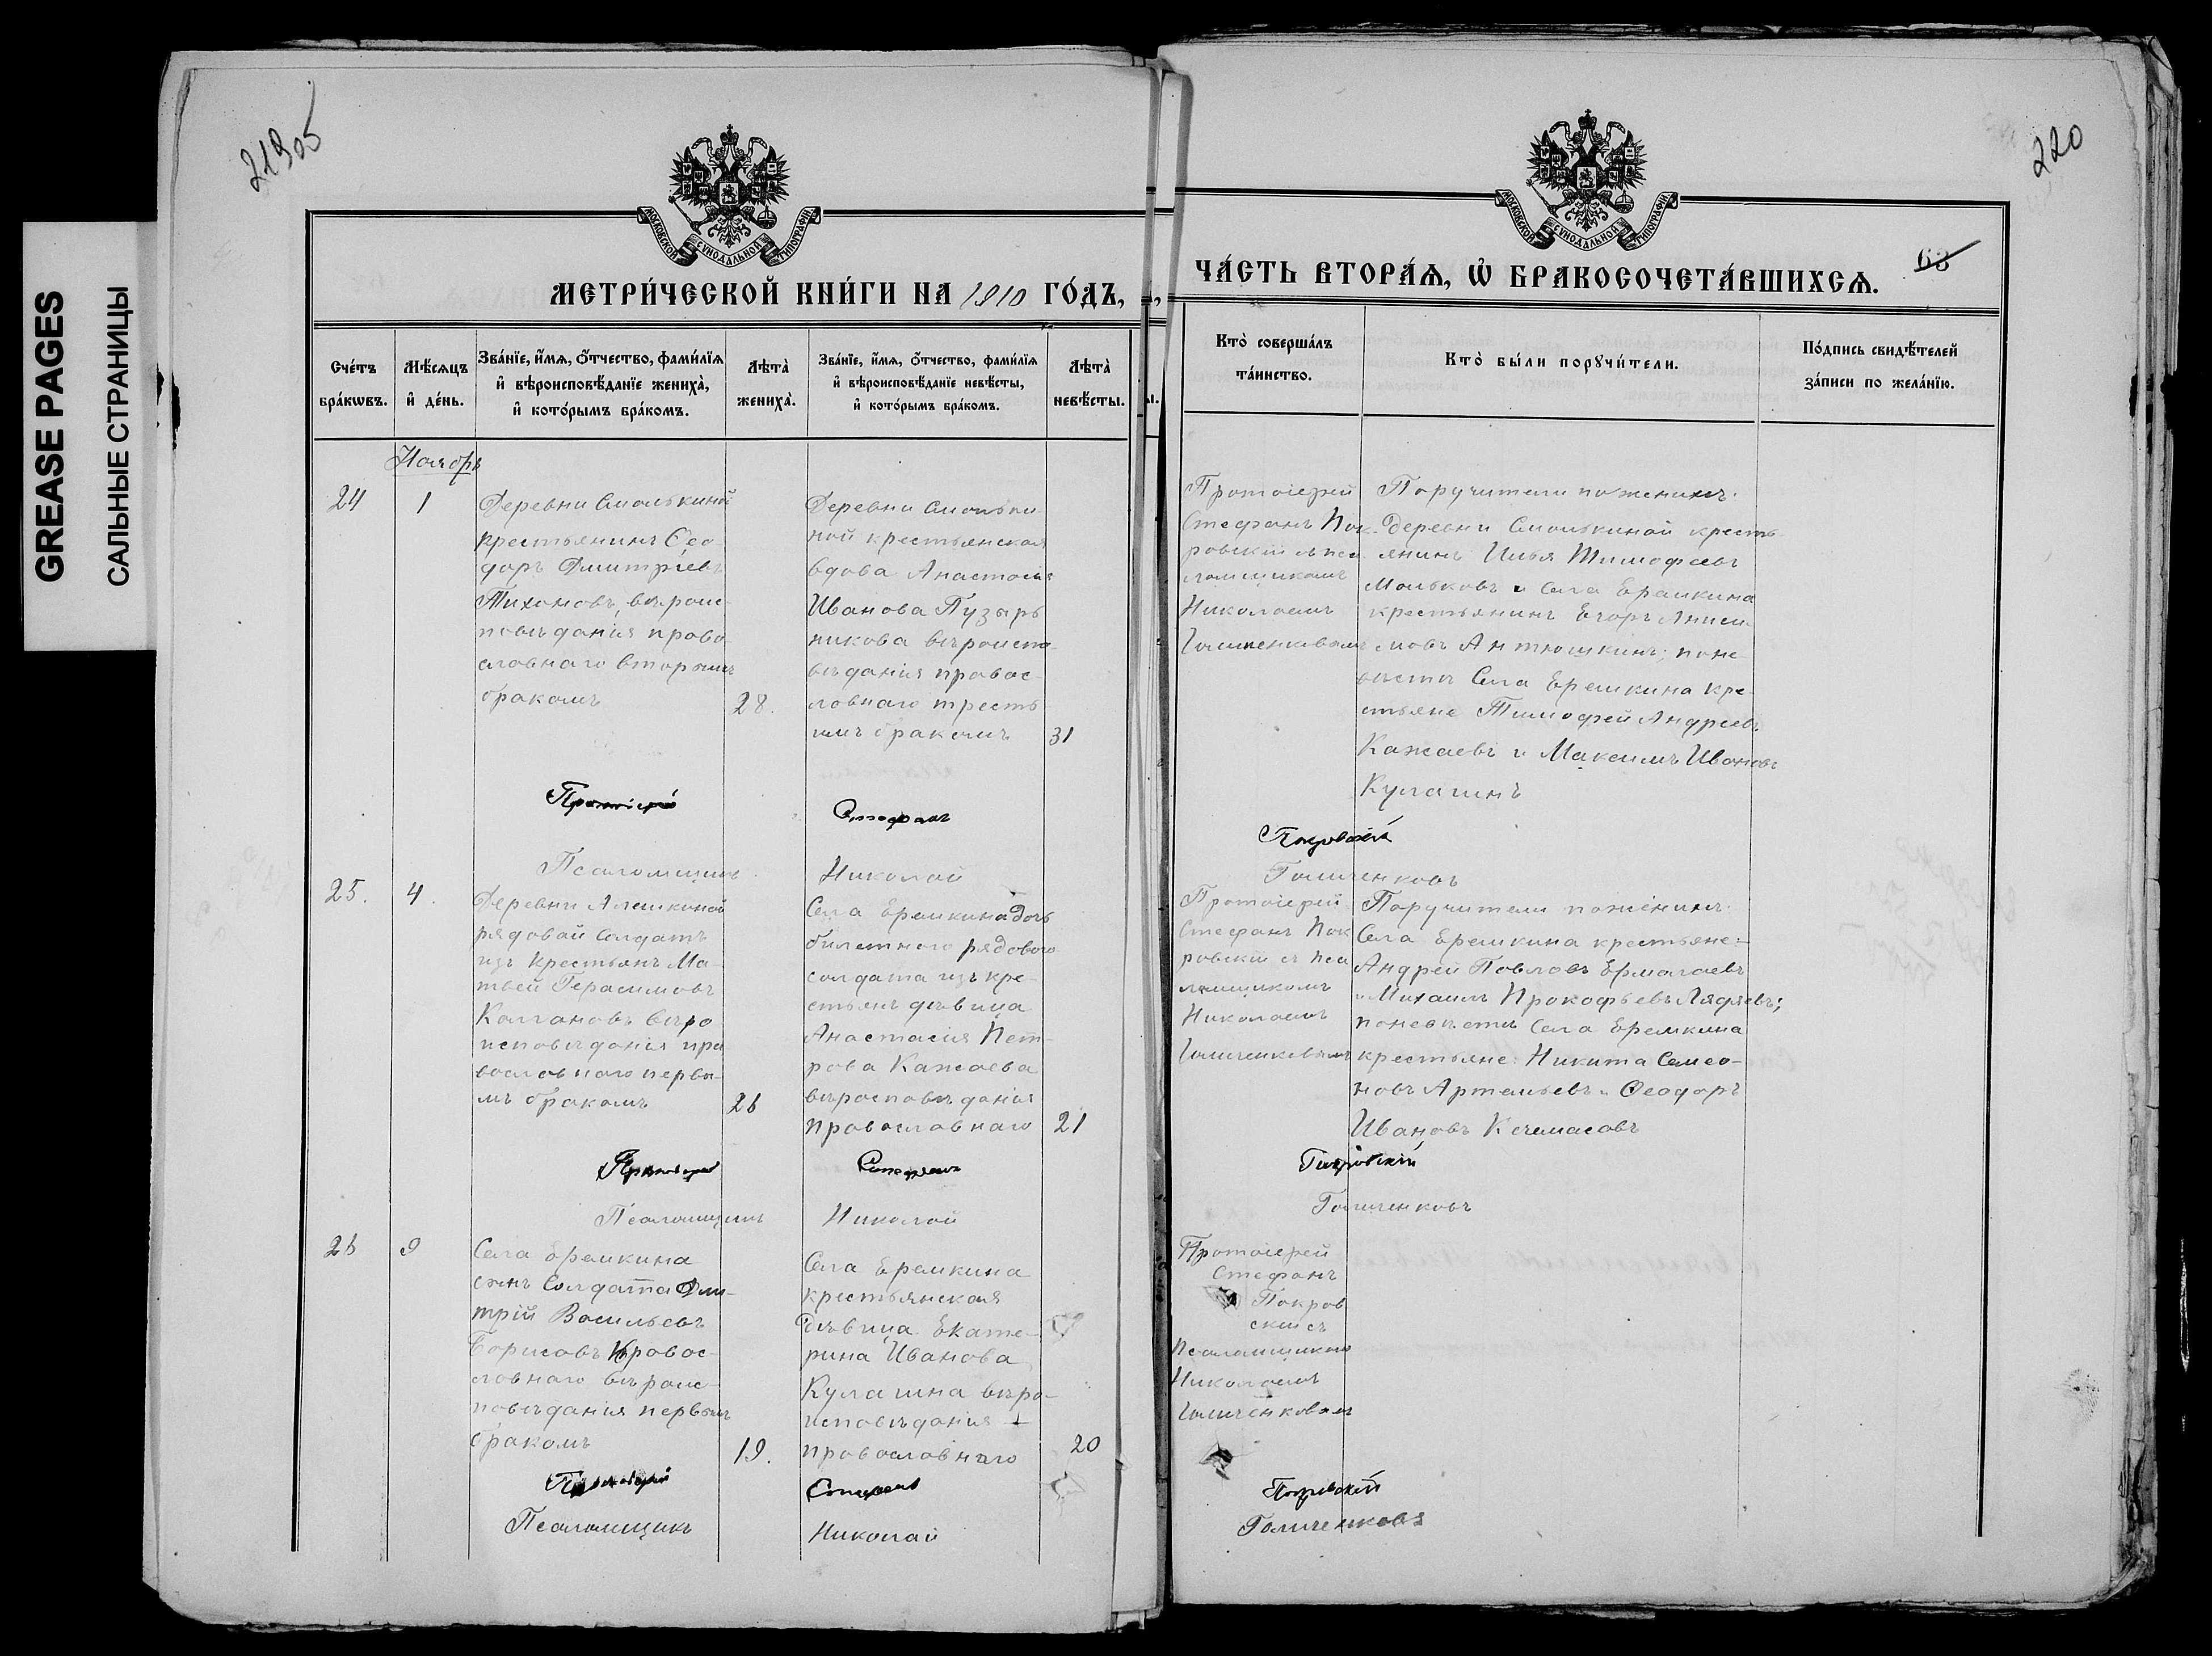 GREASE PAGES
САЛЬНЫЕ СТРАНИЦЫ
220
МОСКОВСКОЙ СѴНОДАЛЬНОЙ ТИПОГРАФІИ
МОСКОВСКОЙ СѴНОДАЛЬНОЙ ТИПОГРАФІИ
63
МЕТРИ́ЧЕСКОЙ КНИ́ГИ НА 1910 ГО́ДЪ,
ЧА́СТЬ ВТОРА́Ѧ, Ѡ҆ БРАКОСОЧЕТА́ВШИХСѦ.
Сче́тъ
бра́кѡвъ.
Мѣ́сѧцъ
и҆ де́нь.
Зва́нїе, и҆́мѧ, ѻ҆́тчество, фами́лїѧ
и҆ вѣроисповѣ́данїе жениха̀,
и҆ кото́рымъ бра́комъ.
Лѣта̀
жениха̀.
Зва́нїе, и҆́мѧ, ѻ҆́тчество, фами́лїѧ
и҆ вѣроисповѣ́данїе невѣ́сты,
и҆ кото́рымъ бра́комъ.
Лѣта̀
невѣ́сты.
Кто̀ соверша́лъ
та́инство.
Кто̀ бы́ли порꙋчи́тели.
По́дпись свидѣ́телей
за́писи по жела́нїю.
Ноябрь
24
1
Деревни Смолькиной
крестьянинъ Ѳео-
доръ Дмитріевъ
Тихоновъ, вѣроис-
повѣданія право-
славнаго вторымъ
бракомъ
28.
Деревни Смольки
ной крестьянская
вдова Анастасія
Иванова Пузырь
никова вѣроиспо-
вѣданія правос-
лавнаго треть
имъ бракомъ
31
Протоіерей
Стефанъ Пок-
ровскій съ пса
ломщикомъ
Николаемъ
Поручители по женихѣ:
деревни Смолькиной кресть-
янинъ Илья Тимофеевъ
Мольковъ и Села Еремкина
крестьянинъ Егоръ Аниси
мовъ Антюшкинъ; поне-
вѣстѣ Села Еремкина кре-
стьяне Тимофей Андреевъ
Кажаевъ и Максимъ Ивановъ
Кулагинъ
Протоіерей Стефанъ Покровскій
Псаломщикъ Николай
25.
4.
Деревни Алешкиной
рядовой солдатъ
изъ крестьянъ Ма-
твей Герасимовъ
Колгановъ вѣро
исповѣданія пра
вославнаго первы-
мъ бракомъ
26
Села Еремкина дочь
билетнаго рядового
солдата изъ кре-
стьянъ дѣвица
Анастасія Пет-
рова Кажаева
вѣроисповѣданія
православнаго
21
Протоіерей
Стефанъ Пок
ровскій съ пса
ломщикомъ
Николаемъ
Поручители по женихѣ:
Села Еремкина крестьяне:-
Андрей Павловъ Ермагаевъ
и Михаилъ Прокофьевъ Лядяевъ;
по невѣстѣ Села Еремкина
крестьяне: Никита Семео-
новъ Артемьевъ и Ѳеодоръ
Ивановъ Кечемасовъ
Протоіерей Стефанъ Покровскій
Псаломщикъ Николай
26
9
Села Еремкина
сынъ солдата Дми-
трій Васильевъ
Борисовъ правос-
лавнаго вѣроис-
повѣданія первымъ
бракомъ
19.
Села Еремкина
крестьянская
дѣвица Екате-
рина Иванова
Кулагина вѣро-
исповѣданія
православнаго
20
Протоіерей
Стефанъ
Покров
скій съ
псаломщикомъ
Николаемъ
Протоіерей Стефанъ Покровскій
Псаломщикъ Николай